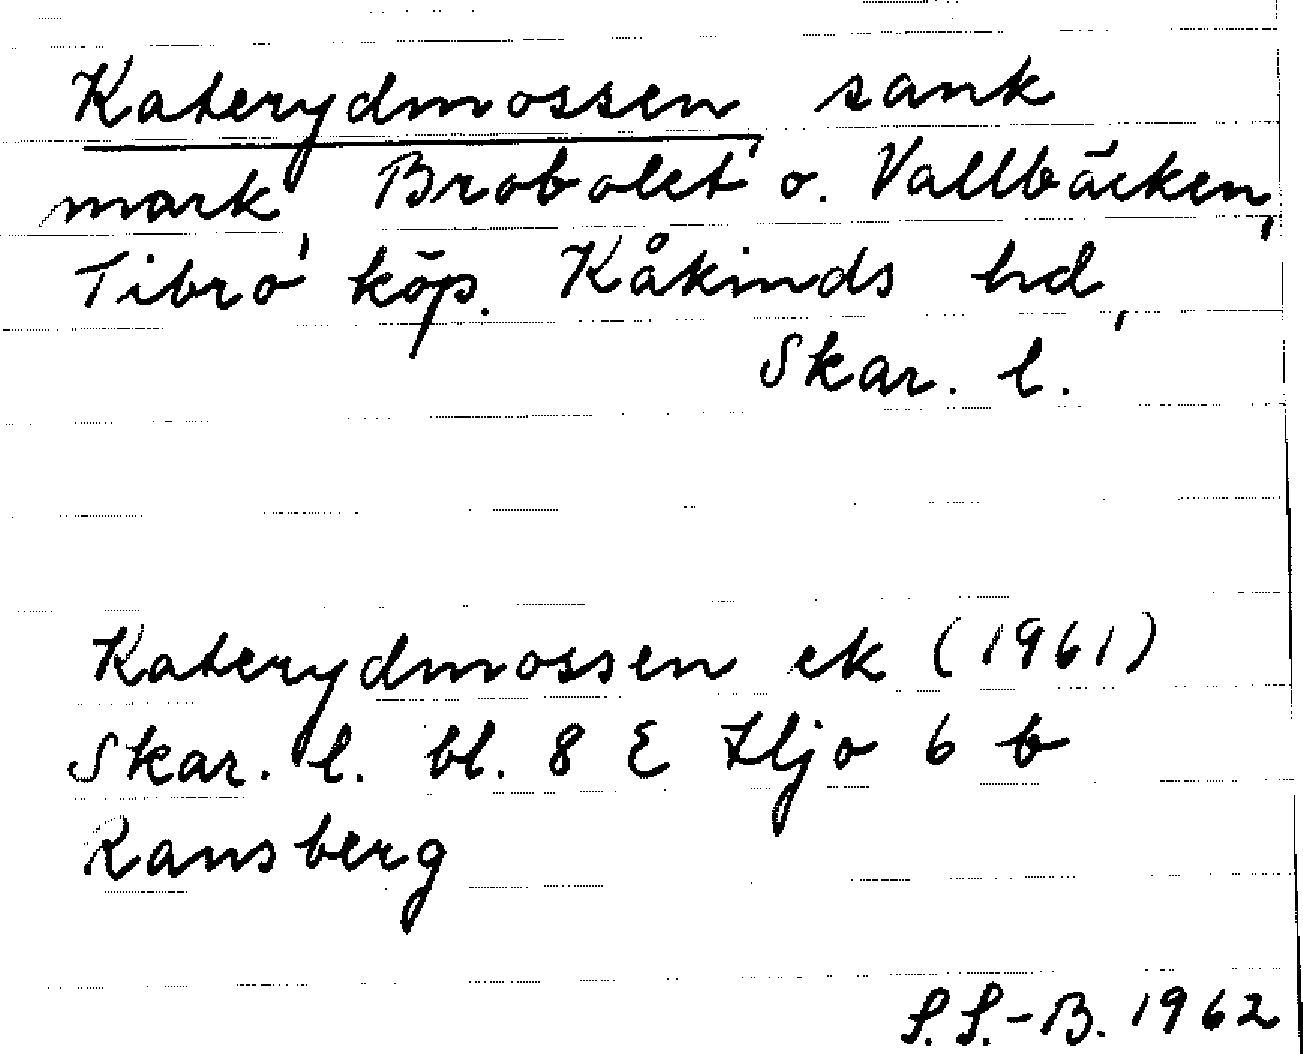 Katerydmossen, sank
mark, Brobolet o. Vallbäcken,
Tibro köp. Kåkinds hd,
Skar. l.
Katerydmossen ek (1961)
Skar. l. bl. 8 E Hjo 6 b
Ransberg
S.S.-B. 1962